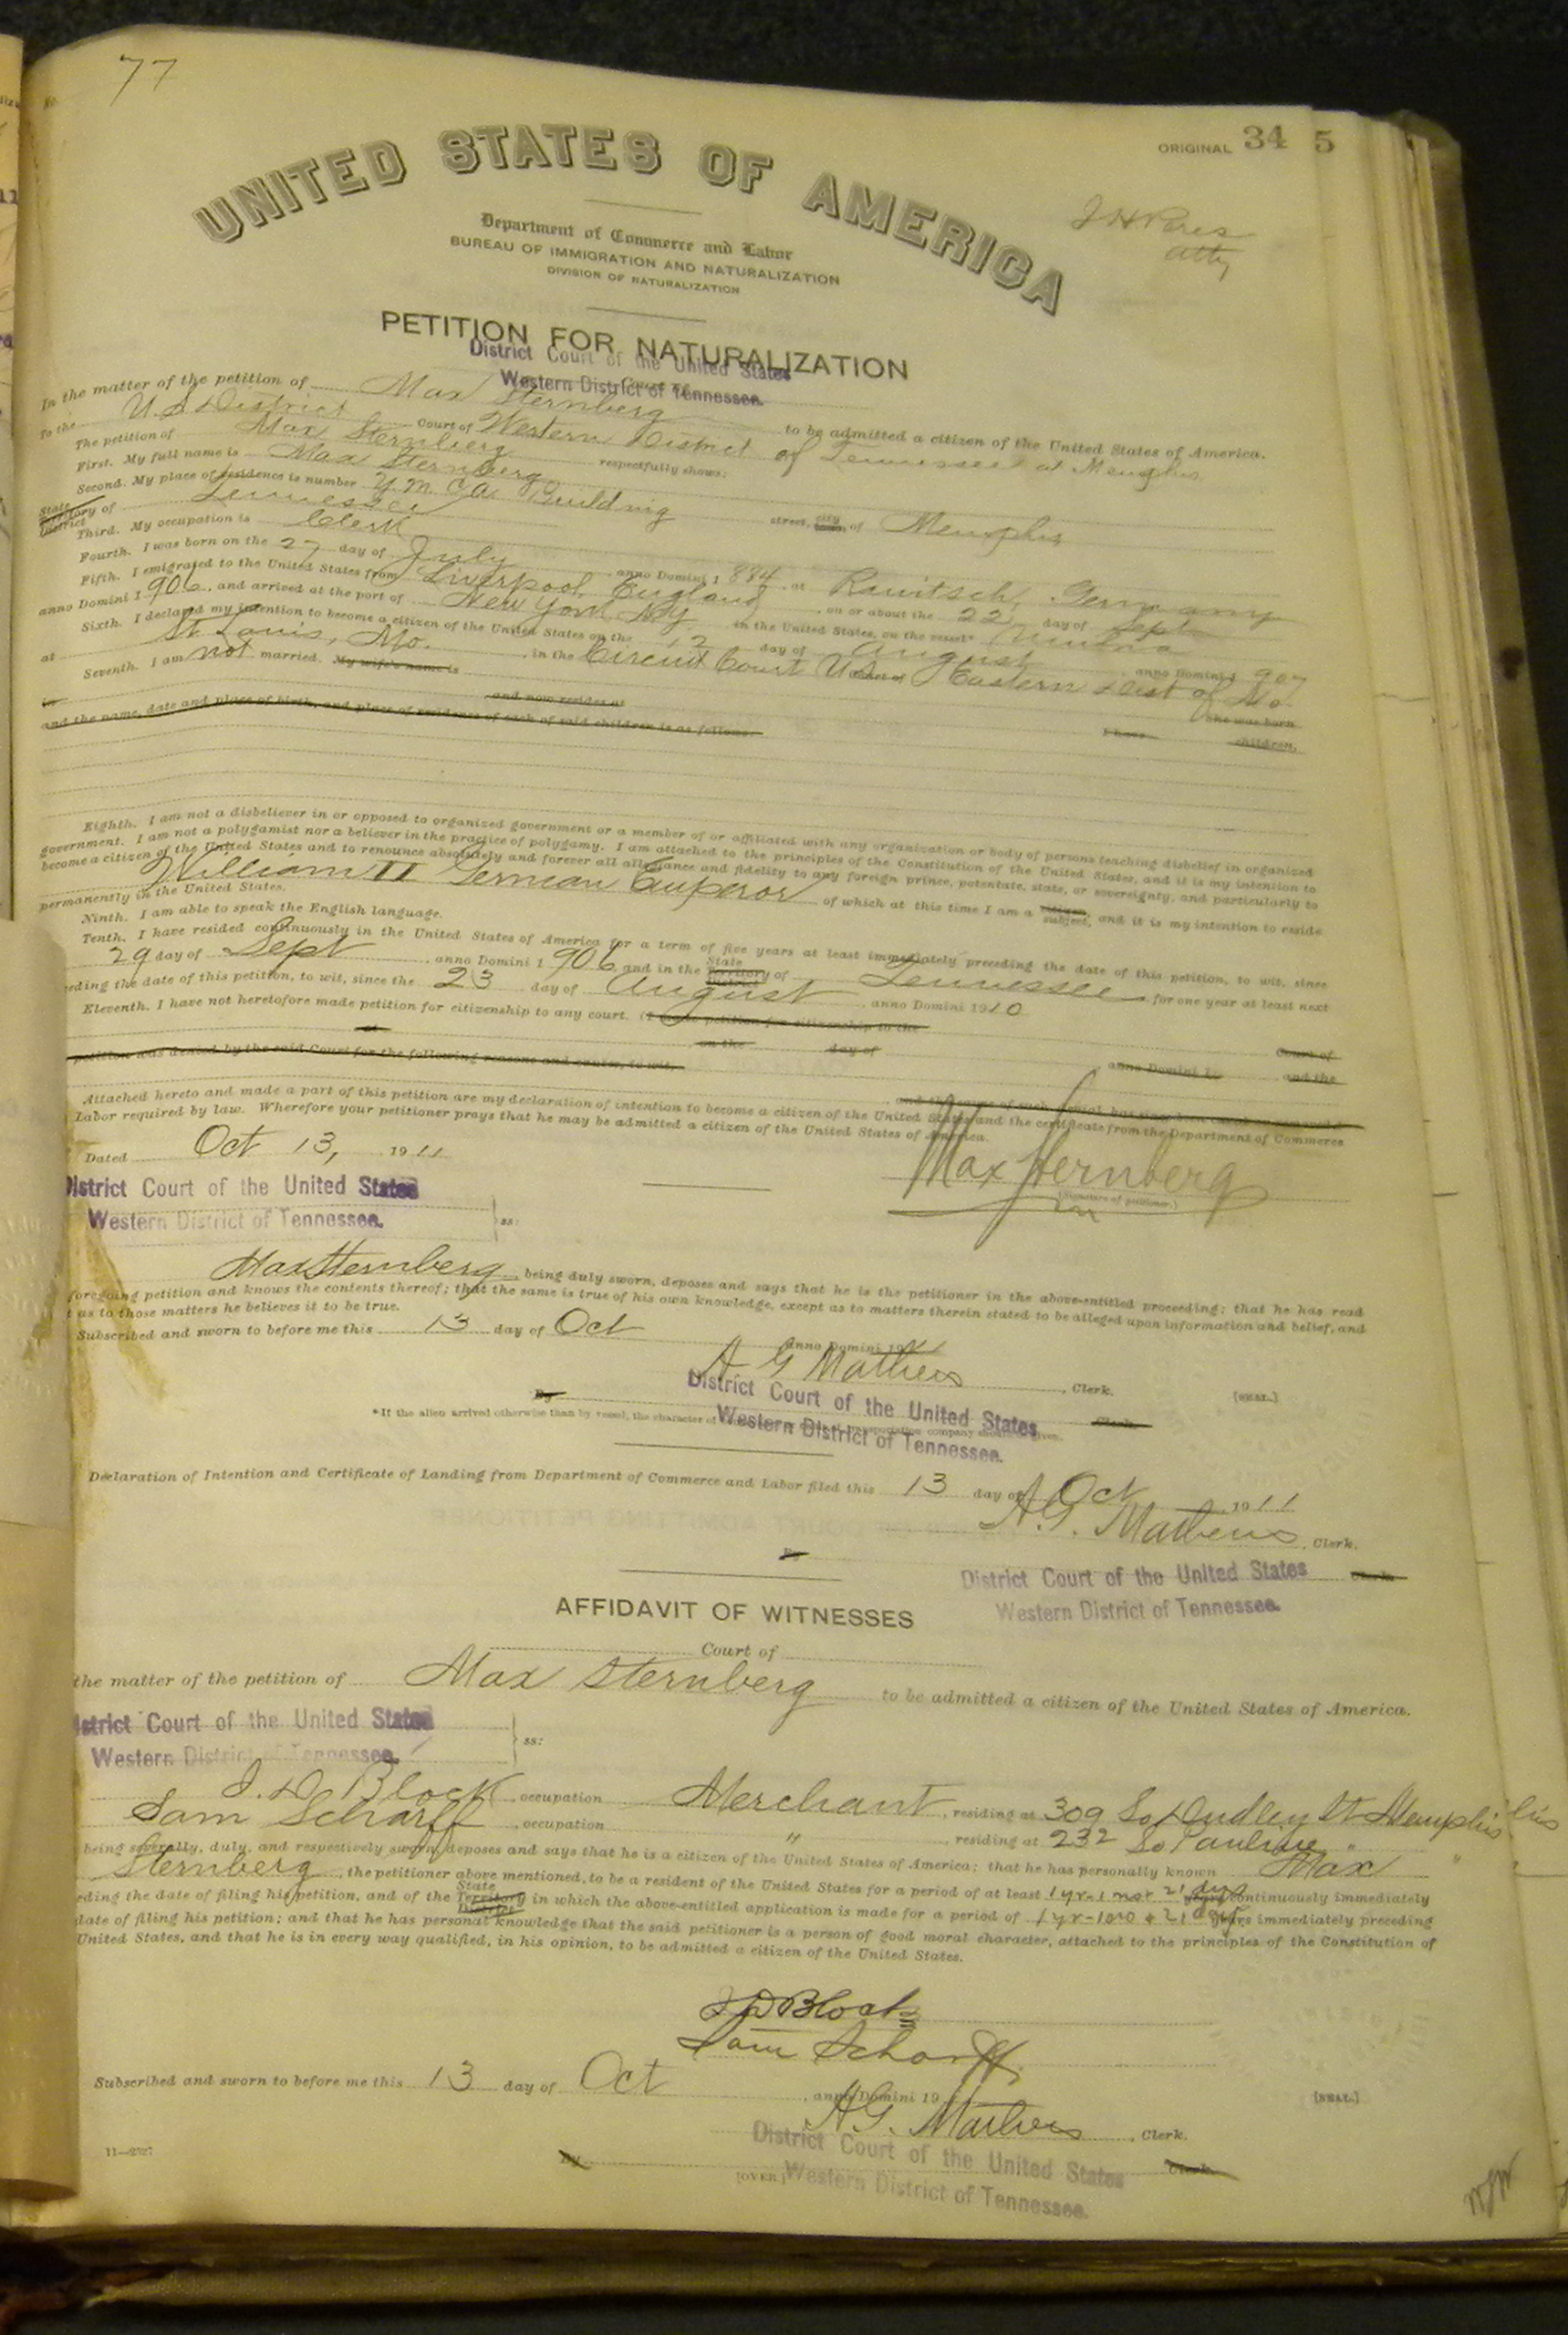 77
ORIGINAL 34 5
UNITED STATES OF AMERICA
Department of Commerce and Labor
BUREAU OF IMMIGRATION AND NATURALIZATION
DIVISION OF NATURALIZATION
atty
PETITION FOR NATURALIZATION
District Court of the United States
Western District of Tennessee.
In the matter of the petition of Max Sternberg to be admitted a citizen of the United States of America.
To the U.S. District Court of Western District of Tennessee at Memphis
The petition of Max Sternberg respectfully shows:
First. My full name is Max Sternberg
Second. My place of residence is number Y.M.C.A. Building street, city of Memphis
State Territory District of Tennessee
Third. My occupation is Clerk
Fourth. I was born on the 27 day of July anno Domini 1884, at Rawitsch, Germany
Fifth. I emigrated to the United States from Liverpool, England, on or about the 22 day of Sept
anno Domini 1906, and arrived at the port of New York NY in the United States, on the vessel*
Sixth. I declared my intention to become a citizen of the United States on the 12 day of August anno Domini 1907
at St Louis, Mo. in the Circuit Court U.S. Court of Eastern Dist of Mo.
Seventh. I am not married. My wife's name is
in and now resides at she was born
and the name, date and place of birth, and place of residence of each of said children is as follows: I have children,
Eighth. I am not a disbeliever in or opposed to organized government or a member of or affiliated with any organization or body of persons teaching disbelief in organized
government. I am not a polygamist nor a believer in the practice of polygamy. I am attached to the principles of the Constitution of the United States, and it is my intention to
become a citizen of the United States and to renounce absolutely and forever all allegiance and fidelity to any foreign prince, potentate, state, or sovereignty, and particularly to
William II German Emperor of which at this time I am a citizen, subject, and it is my intention to reside
permanently in the United States.
Ninth. I am able to speak the English language.
Tenth. I have resided continuously in the United States of America for a term of five years at least immediately preceding the date of this petition, to wit, since
29 day of Sept, anno Domini 1906 and in the State Territory District of Tennessee for one year at least next
eding the date of this petition, to wit, since the 23 day of August anno Domini 1910
Eleventh. I have not heretofore made petition for citizenship to any court. (I made petition for citizenship to the
at on the day of Court of
petition was denied by the said Court for the following reasons and causes, to wit, anno Domini 1 and the
and the cause of such denial has since been
Attached hereto and made a part of this petition are my declaration of intention to become a citizen of the United States and the certificate from the Department of Commerce
Labor required by law. Wherefore your petitioner prays that he may be admitted a citizen of the United States of America.
Dated Oct 13, 1911
Max Sternberg
(Signature of petitioner.)
District Court of the United States
Western District of Tennessee. ss:
Max Sternberg being duly sworn, deposes and says that he is the petitioner in the above-entitled proceeding; that he has read
foregoing petition and knows the contents thereof; that the same is true of his own knowledge, except as to matters therein stated to be alleged upon information and belief, and
t as to those matters he believes it to be true.
Subscribed and sworn to before me this 13 day of Oct anno Domini 1911
A G Mathews, Clerk. [SEAL.]
District Court of the United States
Western District of Tennessee.
By Clerk.
*If the alien arrived otherwise than by vessel, the character of
Declaration of Intention and Certificate of Landing from Department of Commerce and Labor filed this 13 day of Oct, 1911
A.G. Mathews, Clerk.
By Clerk.
District Court of the United States
Western District of Tennessee.
AFFIDAVIT OF WITNESSES
Court of
the matter of the petition of Max Sternberg to be admitted a citizen of the United States of America.
istrict Court of the United States
Western District of Tennessee. ss:
Block, occupation Merchant, residing at 309 So Dudley St Memphis
Sam Scharff, occupation " residing at 232 So Pauline "
being severally, duly, and respectively sworn, deposes and says that he is a citizen of the United States of America; that he has personally known Max
Sternberg, the petitioner above mentioned, to be a resident of the United States for a period of at least 1 yr-1 mo+ 21 dys years continuously immediately
eding the date of filing his petition, and of the State Territory District in which the above-entitled application is made for a period of 1 yr-1 mo + 21 days years immediately preceding
date of filing his petition; and that he has personal knowledge that the said petitioner is a person of good moral character, attached to the principles of the Constitution of
United States, and that he is in every way qualified, in his opinion, to be admitted a citizen of the United States.
Block
Sam Scharff
Subscribed and sworn to before me this 13 day of Oct, anno Domini 19
A.G. Mathews, Clerk. [SEAL.]
District Court of the United States
Western District of Tennessee.
By Clerk.
11—2527
[OVER.]